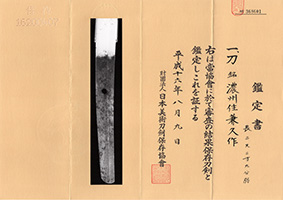 鑑定書
一、刀 銘 濃州住兼久作
右は當協會に於て審査の結果保存刀剣と
鑑定しこれを証する
平成十六年八月九日
財団法人 日本美術刀剣保存協會